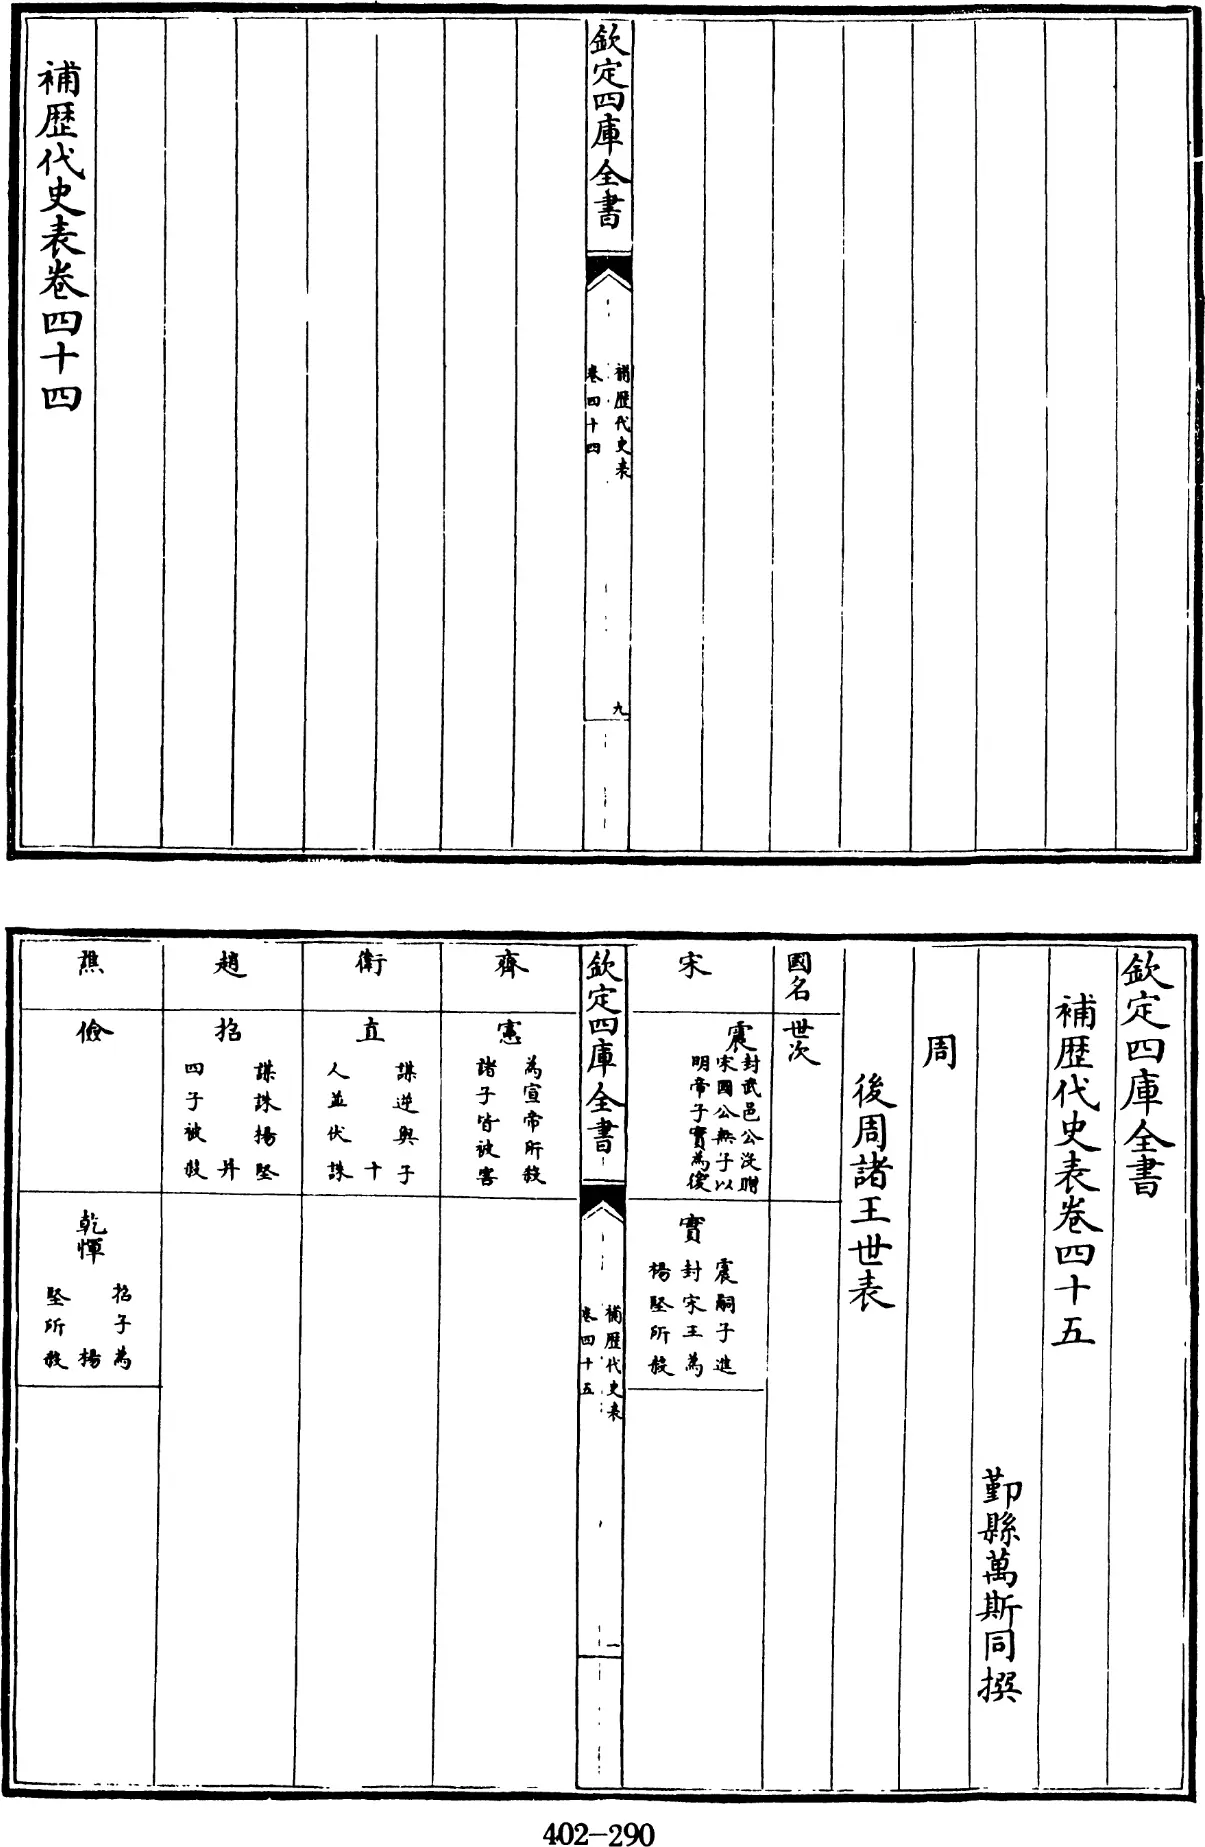 欽定四庫全書
補歴代史表
卷四十四
九
補歴代史表卷四十四
欽定四庫全書
補歴代史表卷四十五
鄞縣萬斯同撰
周
後周諸王世表
國名
世次
宋
震
封武邑公没贈
宋國公無子以
明帝子實為後
實
震嗣子進
封宋王為
楊堅所殺
欽定四庫全書
補歴代史表
卷四十五
一
齊
憲
為宣帝所殺
諸子皆被害
衛
直
謀逆與子
十
人並伏誅
趙
招
謀誅楊堅
并
四子被殺
譙
儉
乾惲
招子為
楊
堅所殺
402-290